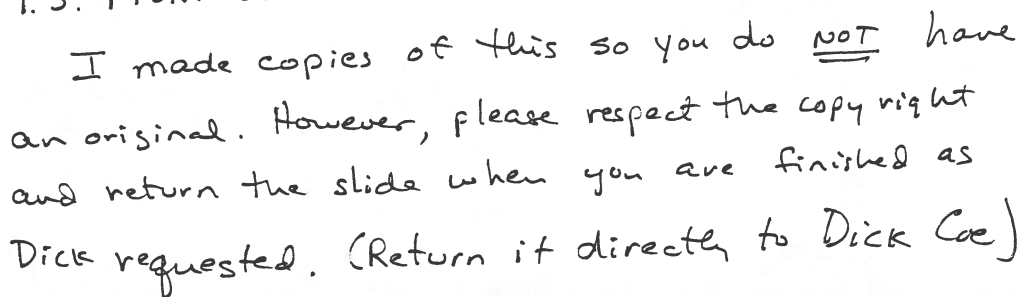 I made copies of this so you do NOT have
an original. However, please respect the copy right
and return the slide when you are finished as
Dick requested. (Return it directly to Dick Coe)